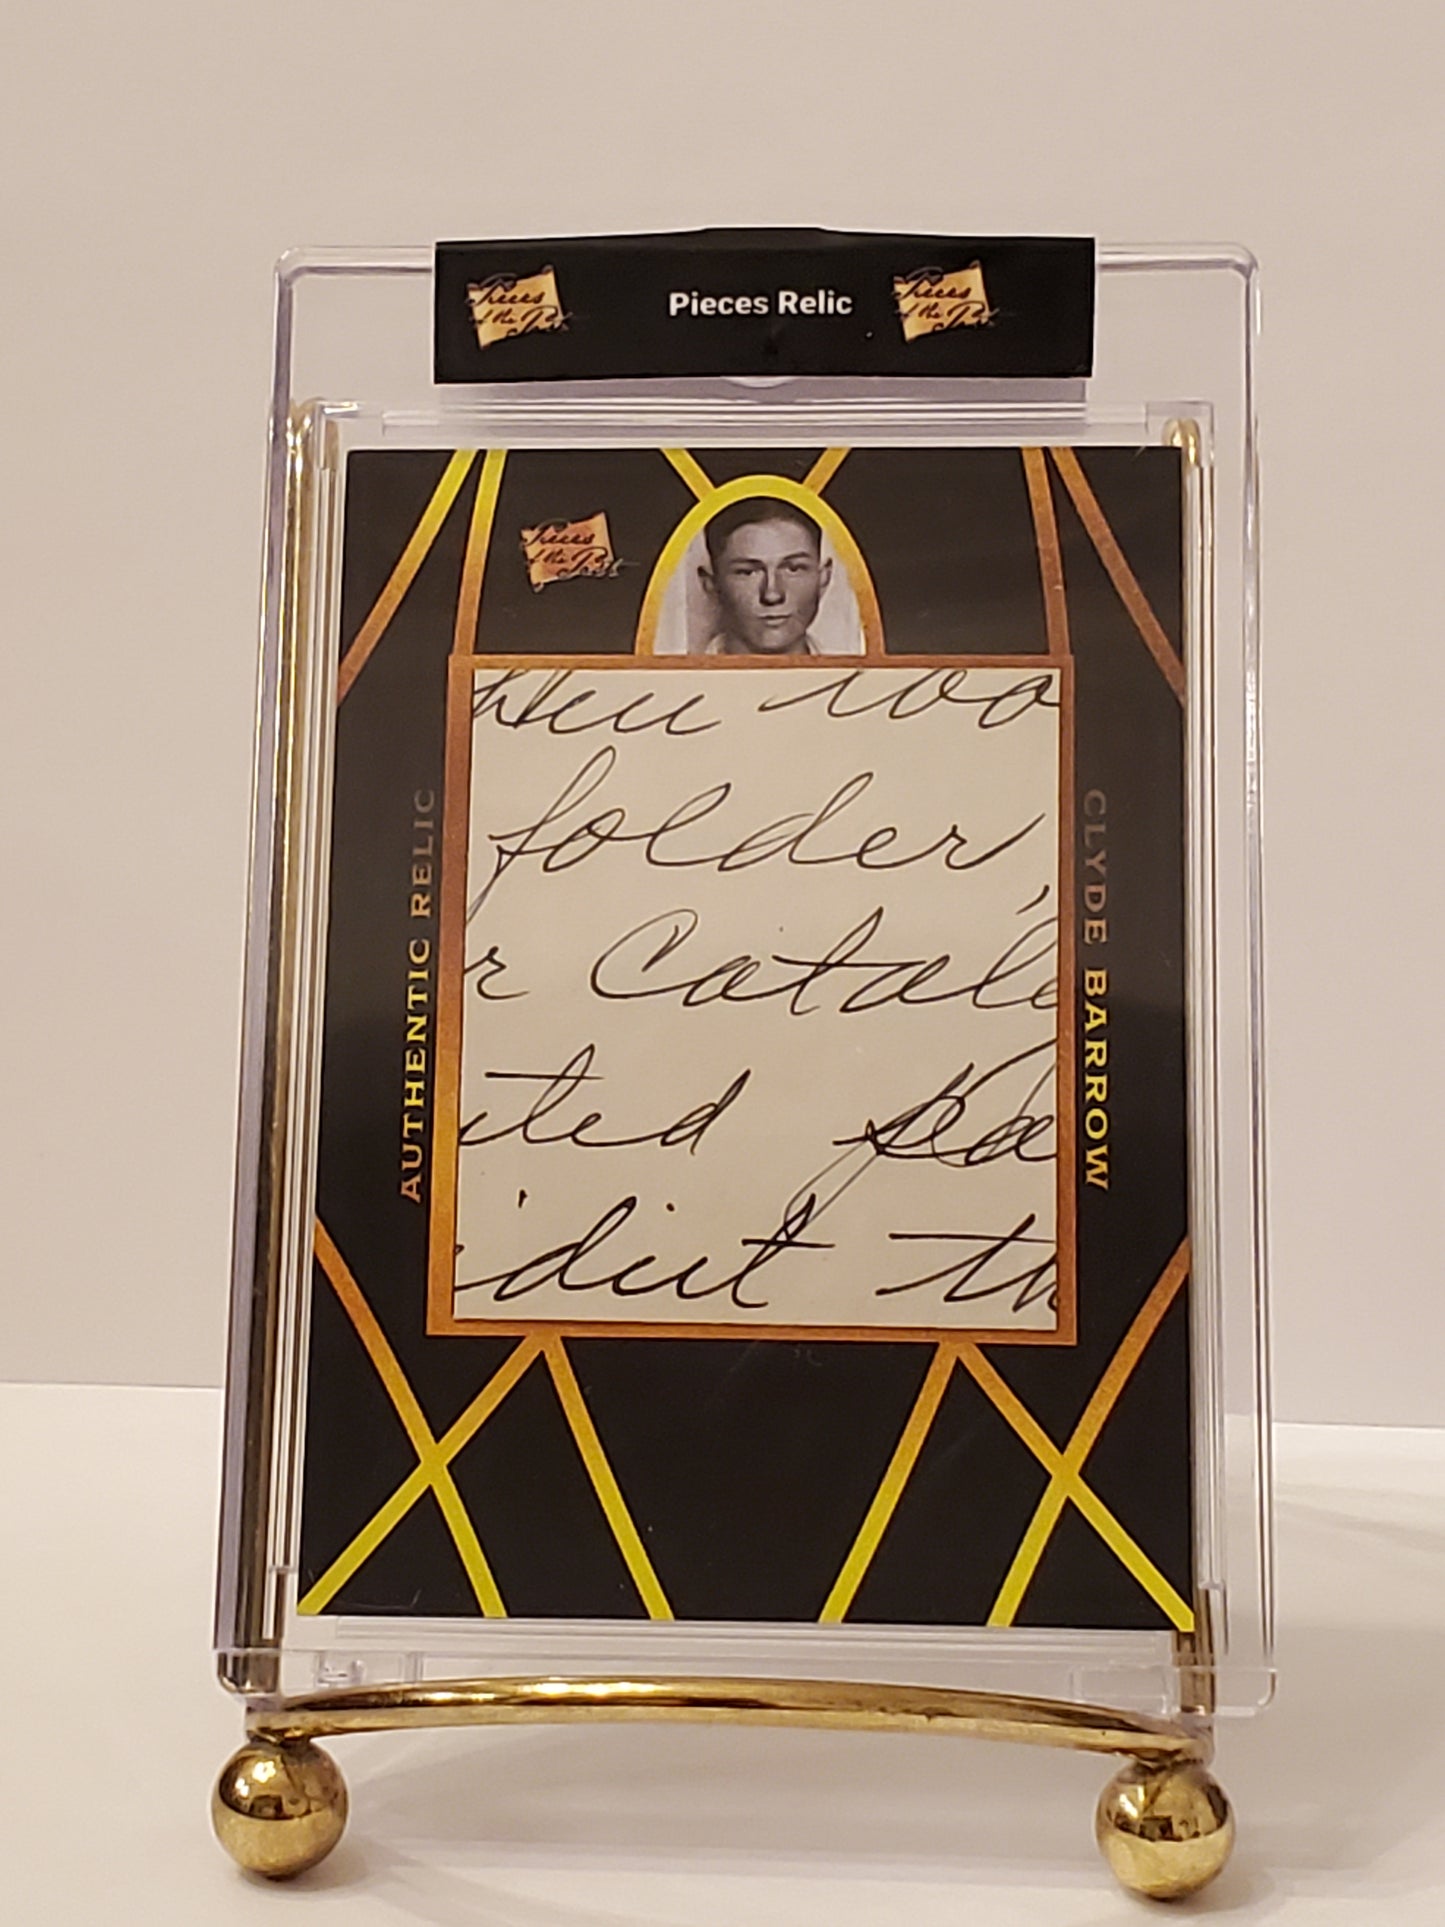 Pieces of the Past
Pieces Relic
Pieces of the Past
Pieces of the Past
AUTHENTIC RELIC
folder,
r Catalo
ited
dict th
CLYDE BARROW